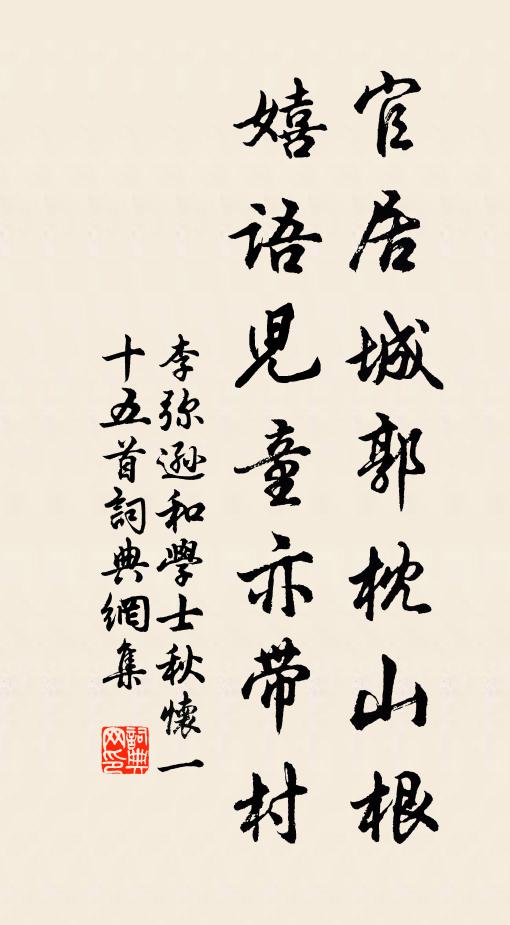 官居城郭枕山根
嬉語兒童亦带村
李弥遜和學士秋懷一
十五首詞典網集
詞典网印